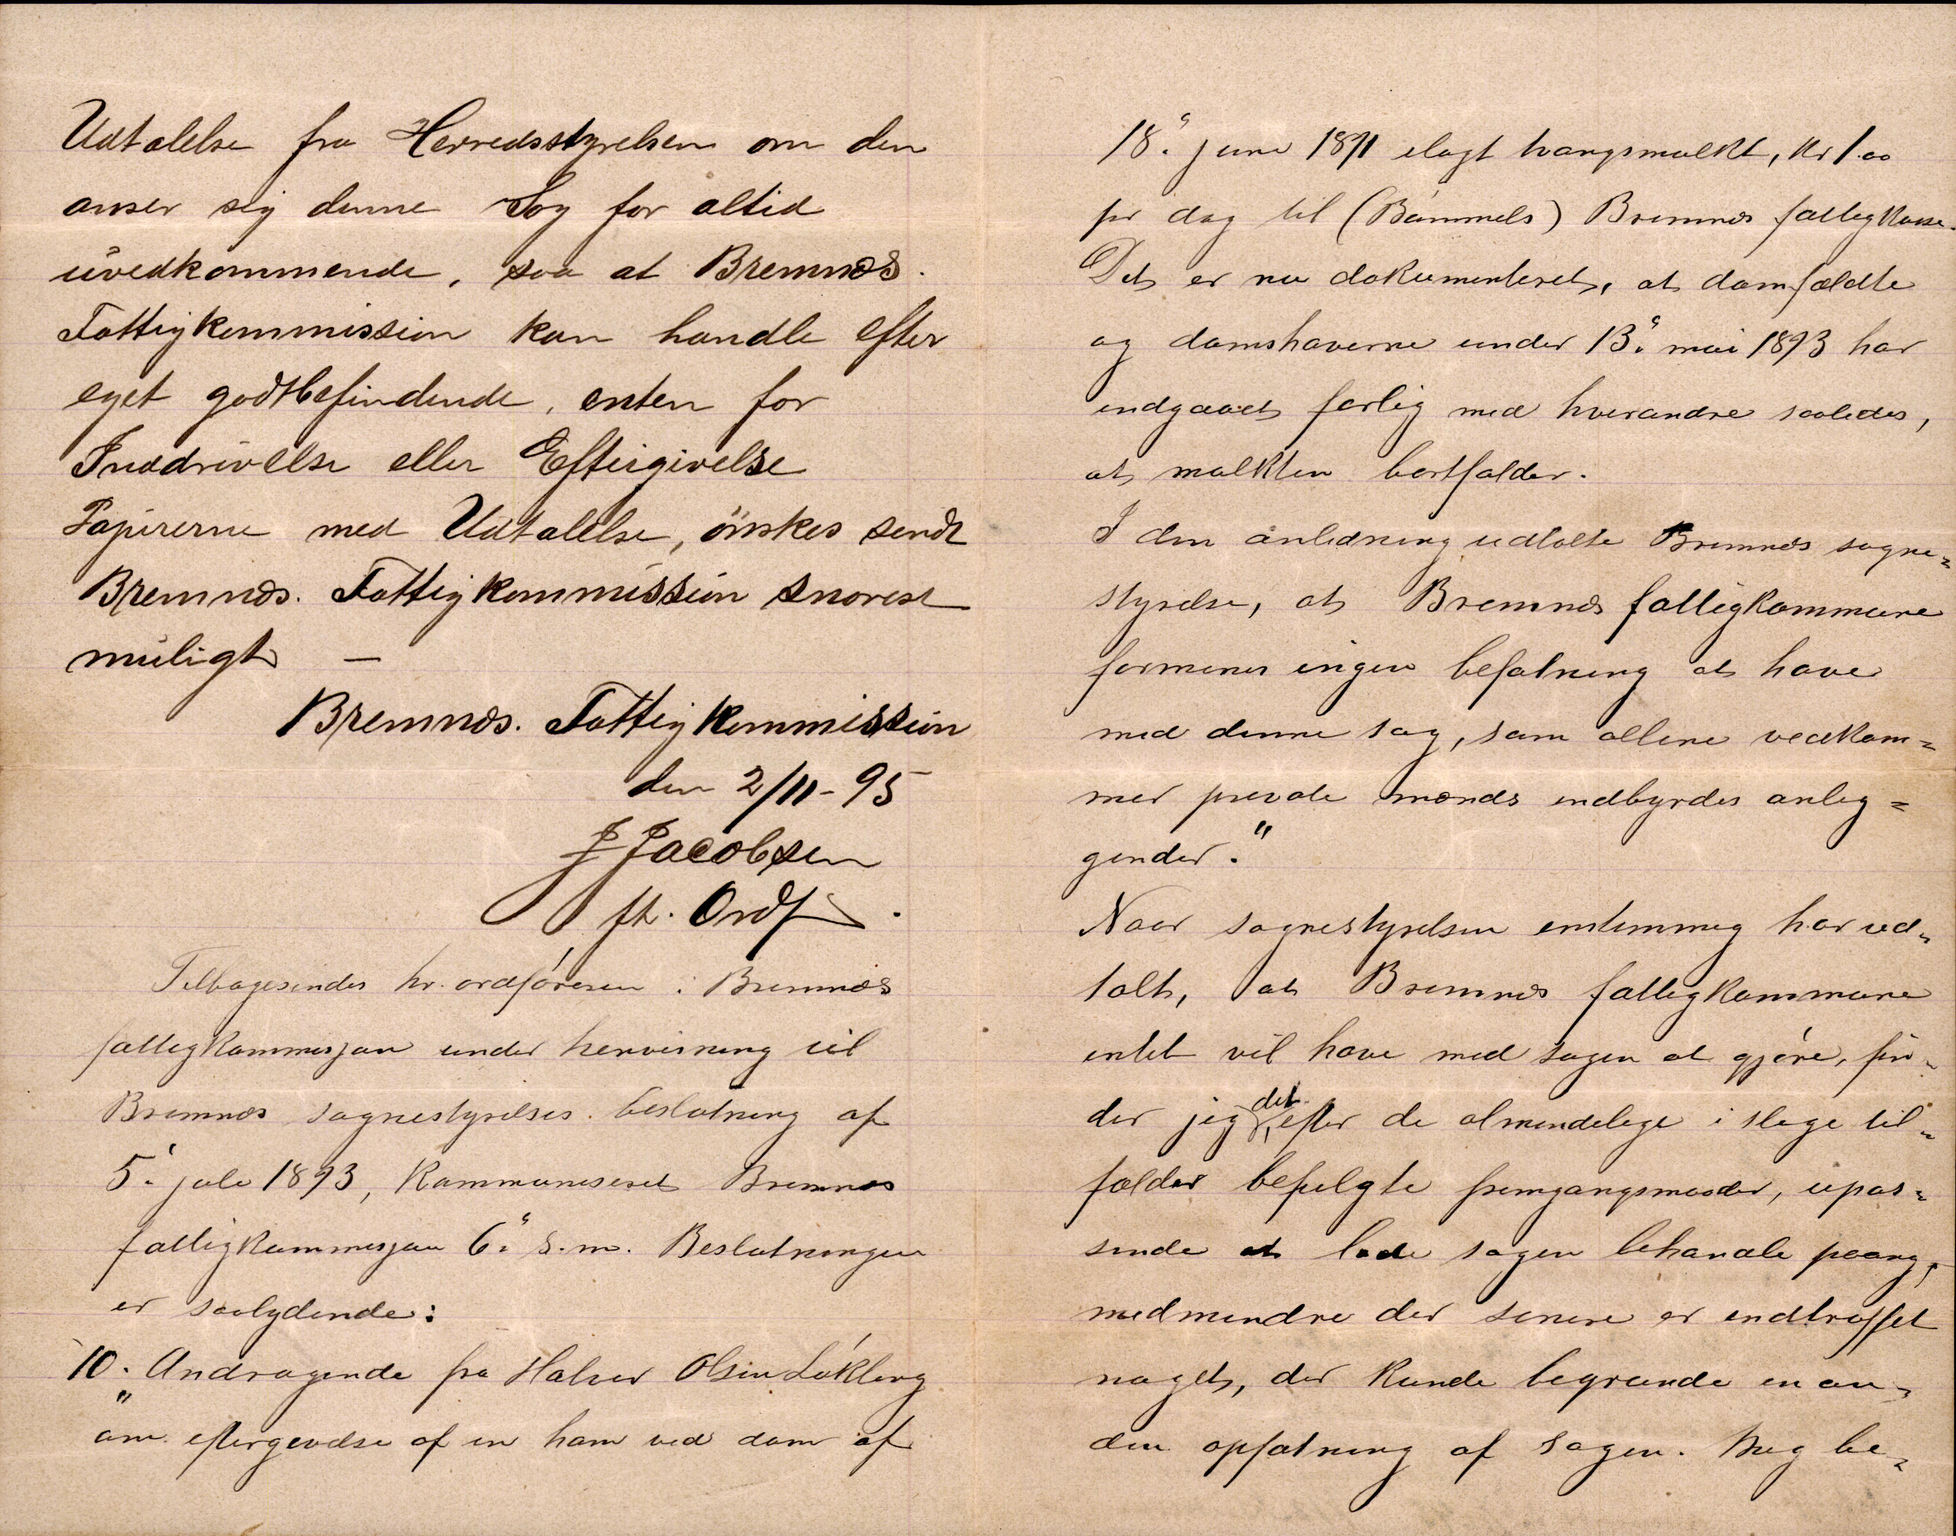 Udtalelse fra Herredsstyrelsen om den
anser sig denne Sag for altid
uvedkommende, saa at Bremnæs.
Fattigkommission kan handle efter
eget godtbefindende, enten for
Inddrivelse eller Eftergivelse
Papirerne med Udtalelse, önskes sendt
Bremnæs. Fattigkommission snarest
muligt —
Bremnæs. Fattigkommission
den 2/11-95
J Jacobsen
ft. Ordf.
Tilbagesendes hr. ordföreren i Bremnæs
fattigkommisjon under henvisning til
Bremnæs sognestyrelses beslutning af
5. juli 1893, kommuniseret Bremnæs
fattigkommisjon 6. s.m. Beslutningen
er saalydende:
"10. Andragende fra Halvor Olsen Lökling
om eftergivelse af en ham ved dom af
18. juni 1891 ilagt tvangsmulkt, kr 1.00
pr dag til (Bömmels) Bremnæs fattigkasse.
Det er nu dokumenteret, at domfældte
og domshaverne under 13. mai 1893 har
indgaaet forlig med hverandre saaledes,
at mulkten bortfalder.
I den anledning udtalte Bremnæs sogne-
styrelse, at Bremnæs fattigkommune
formenes ingen befatning at have
med denne sag, som allene vedkom-
mer private mænds indbyrdes anlig-
gender."
Naar sognestyrelsen enstemmig har ud-
talt, at Bremnæs fattigkommune
intet vil have med sagen at gjöre, fin-
der jeg det, efter de almindelige i slige til-
fælder befulgte fremgangsmaader, upas-
sende at lade sagen behandle paany,
medmindre der senere er indtruffet
noget, der kunde begrunde en an-
den opfatning af sagen. Mig be-